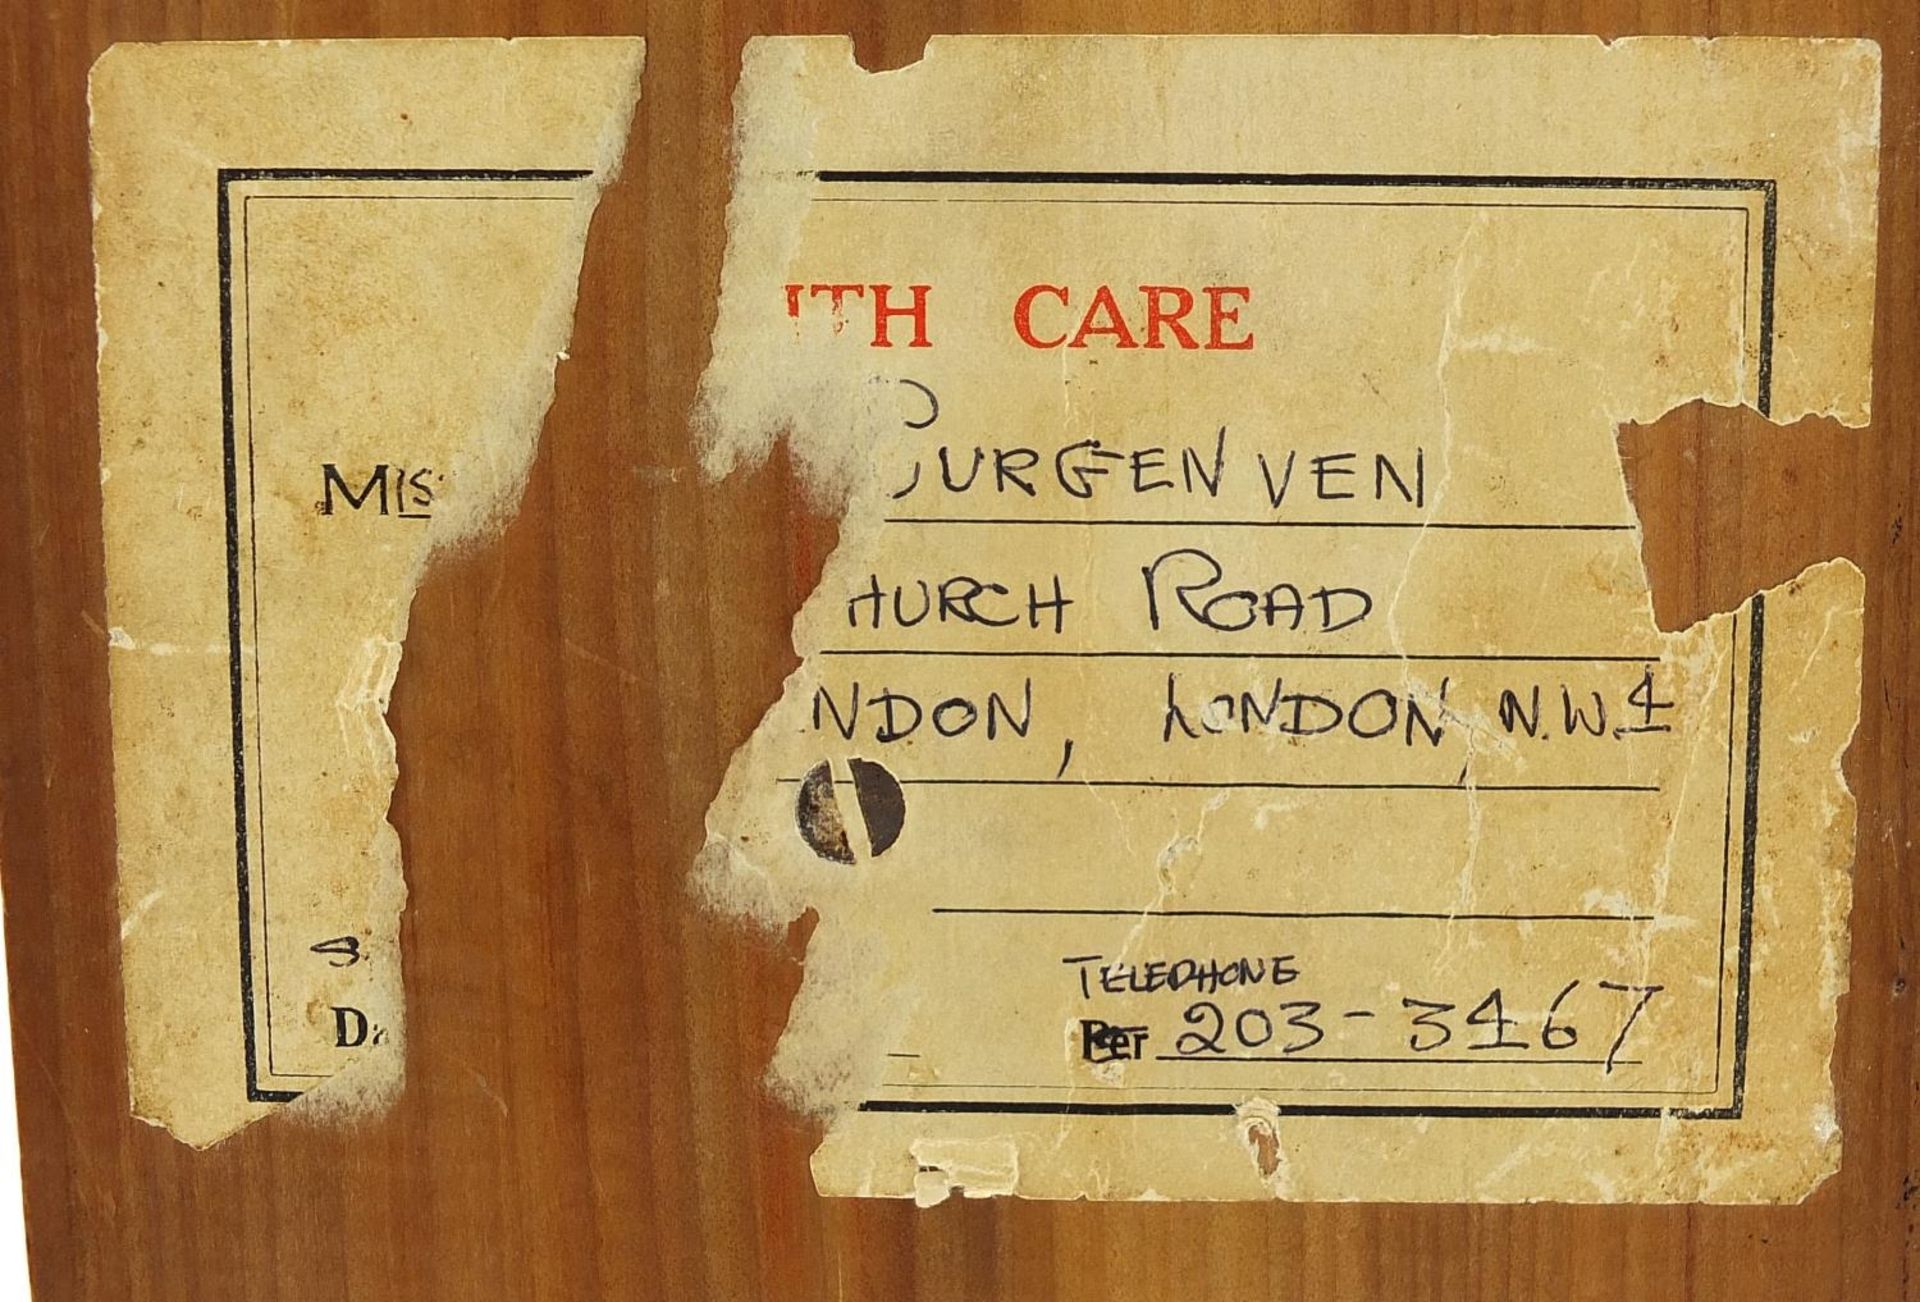 ITH CARE
MIS URGENVEN
HURCH ROAD
NDON, LONDON, N.W.4
TELEPHONE
Per 203-3467